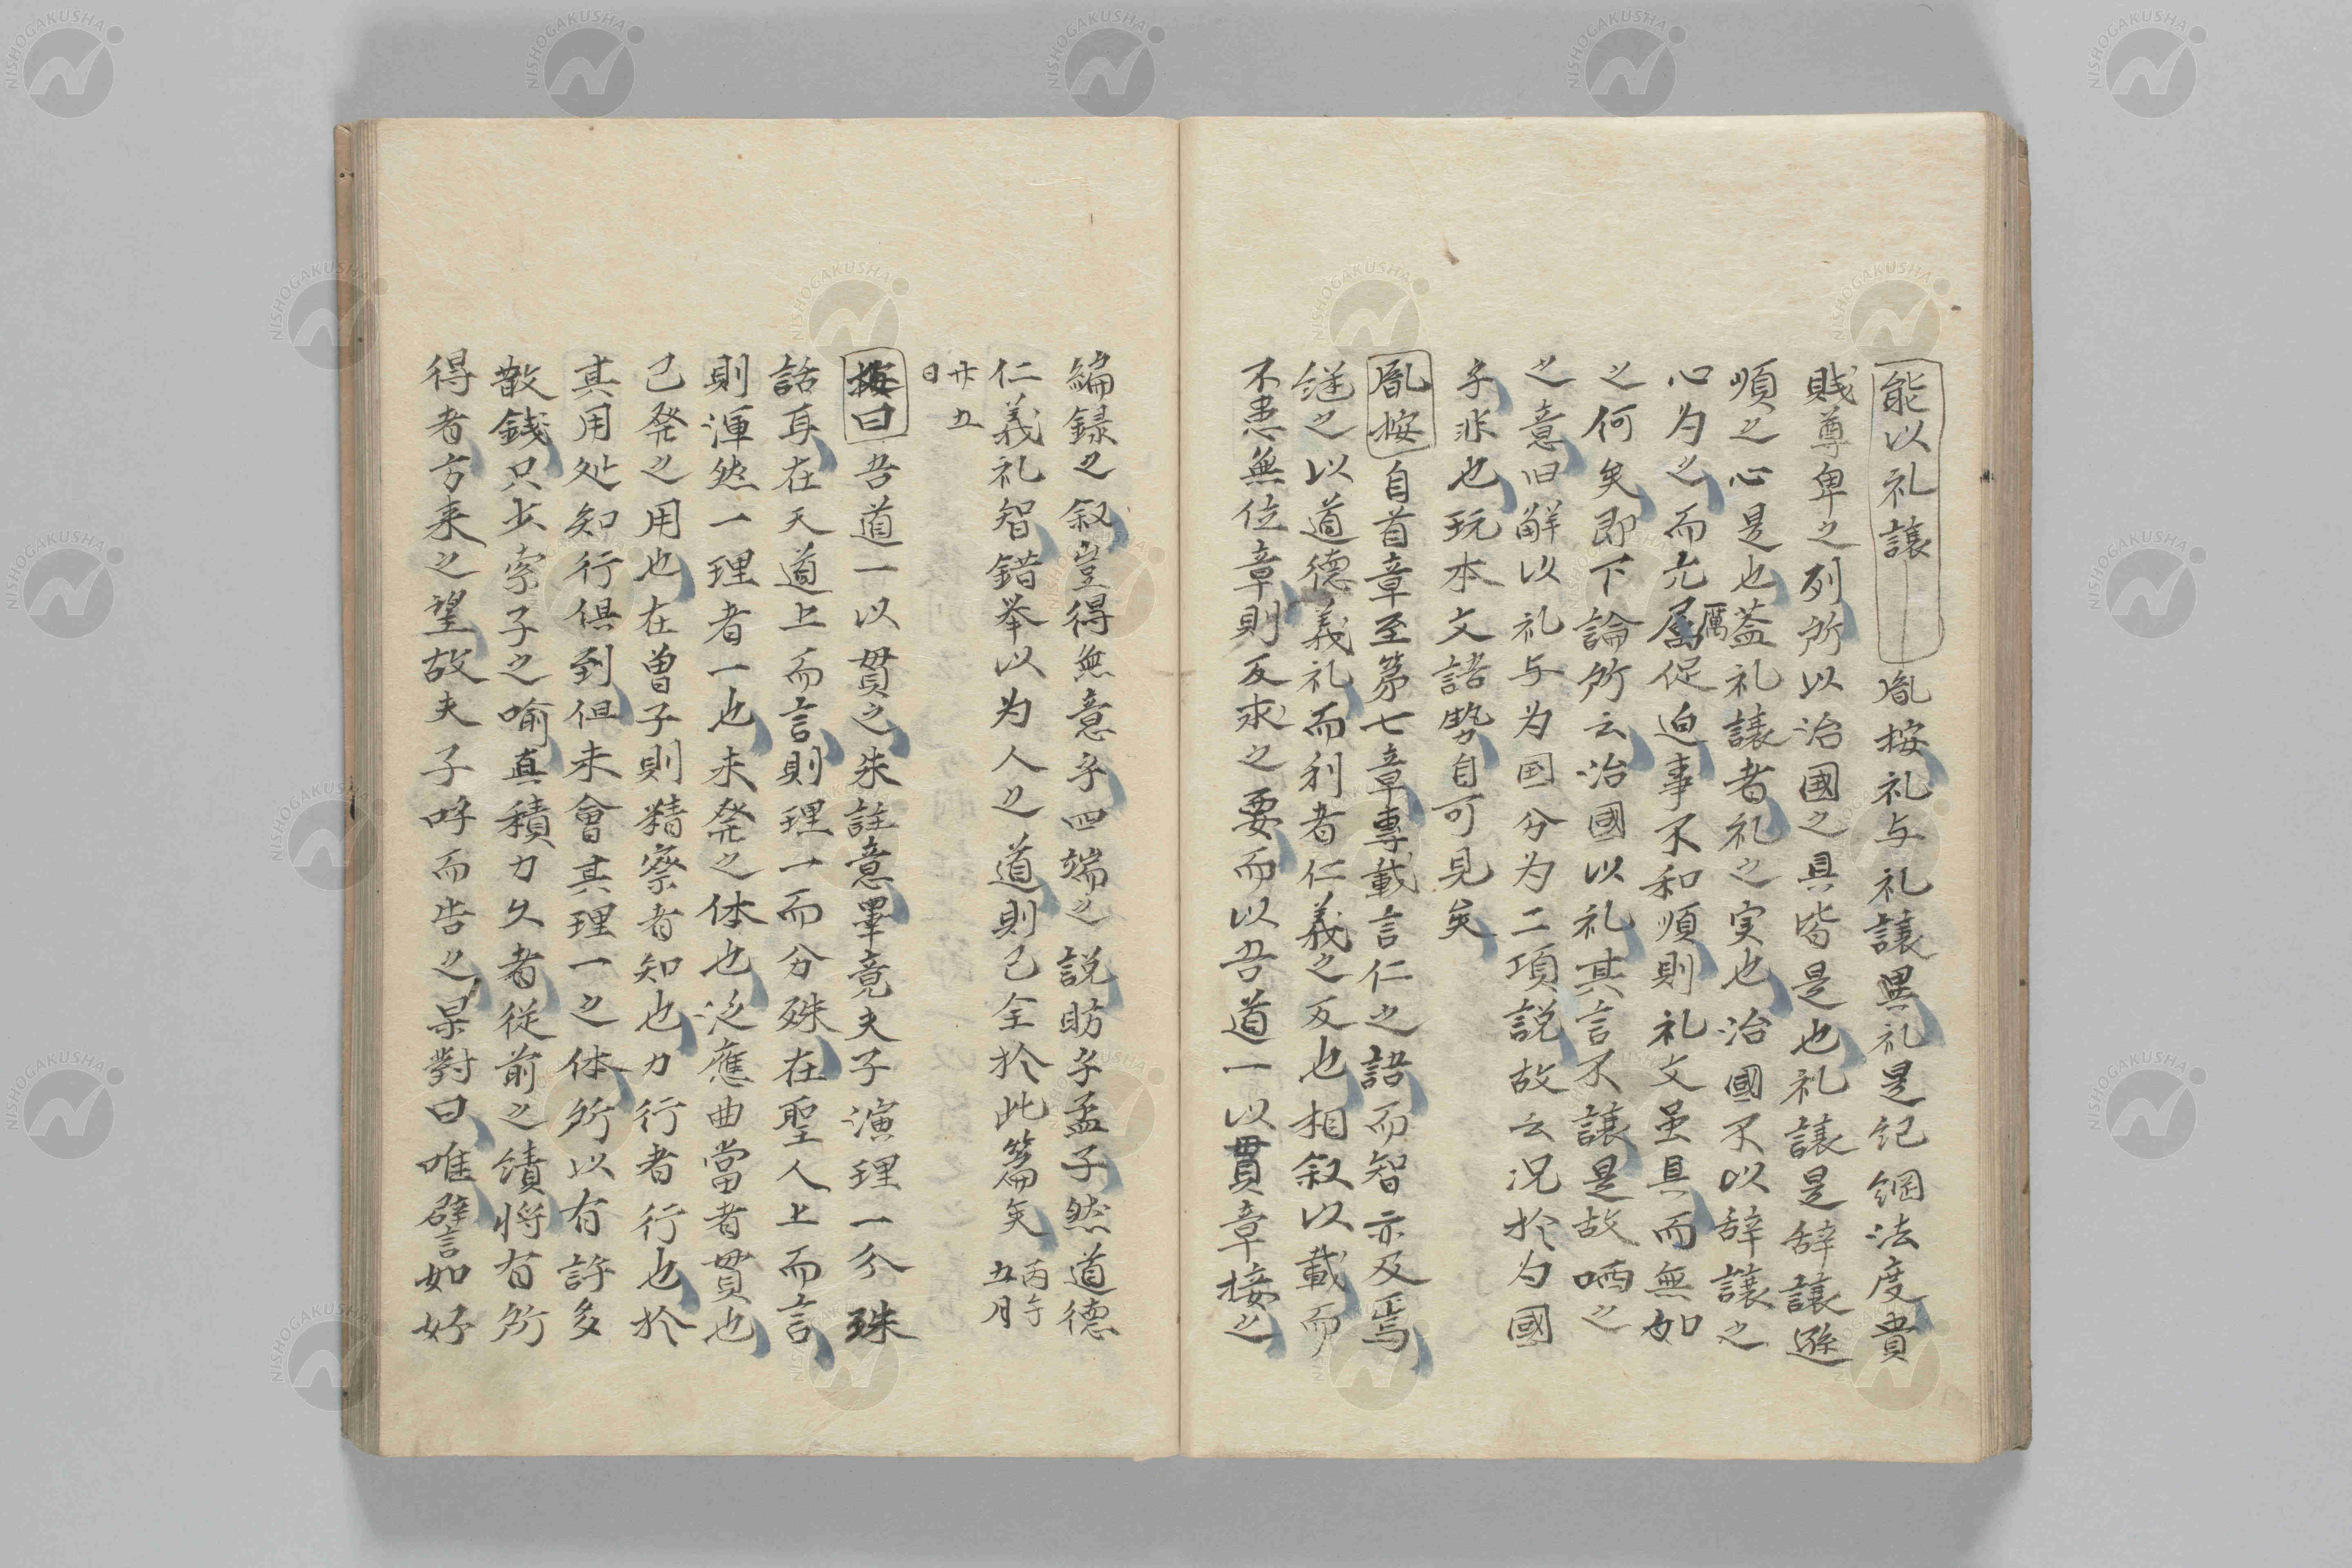 能以礼讓 胤按礼与礼讓異礼是紀綱法度貴
賎尊卑之列所以治國之具皆是也礼讓是辞讓遜
順之心是也蓋礼讓者礼之実也治國不以辞讓之
心为之而尤厲促迫事不和順則礼文虽具而無如
之何矣即下論所云治國以礼其言不讓是故哂之
之意旧解以礼与为国分为二項説故云况於为國
乎非也玩本文語勢自可見矣
胤按 自首章至第七章專載言仁之語而智亦及焉
継之以道德義礼而利者仁義之反也相叙以載而
不患無位章則反求之要而以吾道一以貫章接之
編録之叙豈得無意乎四端之説昉乎孟子然道德
仁義礼智錯举以为人之道則已全於此篇矣 丙午五月
廿五日
按曰 吾道一以貫之朱註意畢竟夫子演理一分殊
話耳在天道上而言則理一而分殊在聖人上而言
則渾然一理者一也未発之体也泛應曲當者貫也
已発之用也在曽子則精察者知也力行者行也於
其用処知行倶到但未會其理一之体所以有許多
散銭只少索子之喻真積力久者従前之績将有所
得者方来之望故夫子呼而告之果對曰唯譬如好
NISHOGAKUSHA